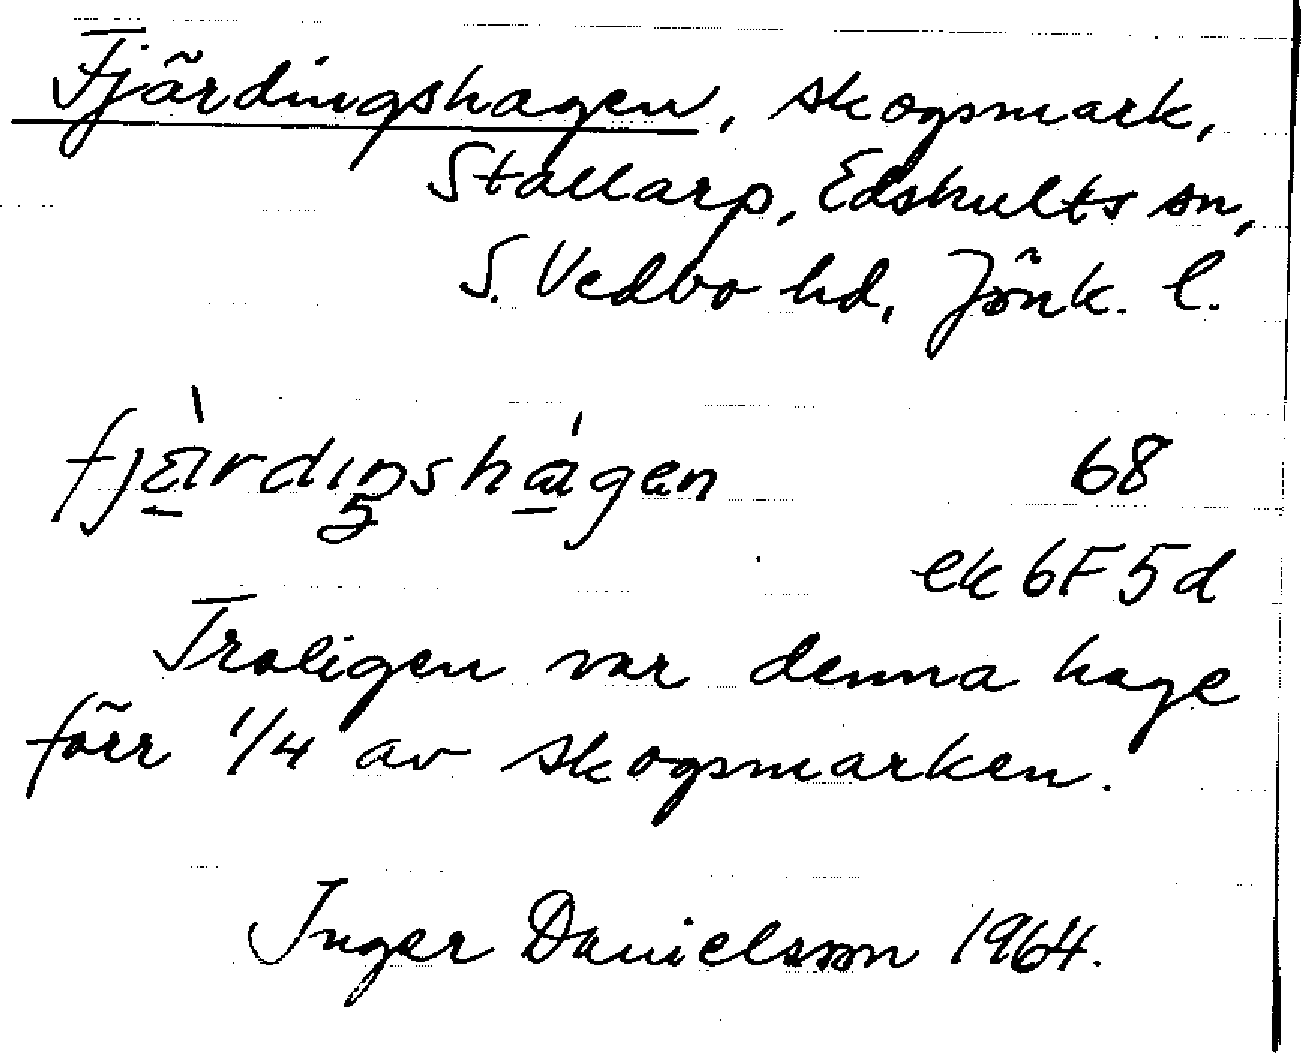 Fjärdingshagen, skogsmark,
Stallarp, Edshults sn,
S. Vedbo hd, Jönk. l.
fjä̀rdiŋshágen 68
ek 6F 5d
Troligen var denna hage
förr 1/4 av skogsmarken.
Inger Danielsson 1964.